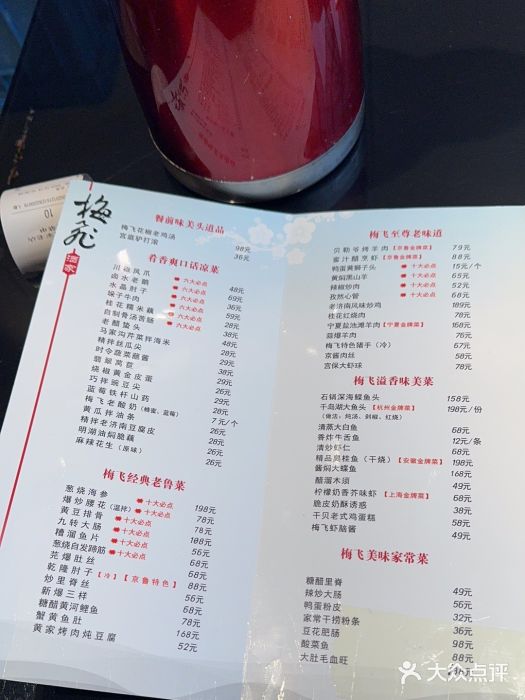 梅飞
酒家
10
餐前味美头道品
梅飞花椒老鸡汤 98元
宫庭驴打滚 36元
肴香爽口话凉菜
川滋凤爪 六大必点 48元
卤水老鹅 六大必点 69元
水晶肘子 六大必点 36元
垛子牛肉 六大必点 59元
桂花糯米藕 六大必点 28元
自制骨汤苦肠 六大必点 59元
老醋蛰头 38元
马家沟芹菜拌海米 48元
精拌丝瓜尖 38元
时令蔬菜蘸酱 28元
翡翠莴苣 28元
烧椒黄金皮蛋 29元
巧拌豌豆尖 29元
蓝莓铁杆山药 28元
梅飞老酸奶(蜂蜜、蓝莓) 7元/个
黄瓜拌油条 26元
精拌老济南豆腐皮 26元
明湖油焖脆藕 28元
麻辣花生(原味) 26元
梅飞经典老鲁菜
葱烧海参 十大必点 198元
爆炒腰花(温拌) 十大必点 78元
黄豆排骨 十大必点 78元
九转大肠 十大必点 188元
糟溜鱼片 十大必点 56元
葱烧自发蹄筋 十大必点 68元
芫爆肚丝 68元
乾隆肘子【冷】【京鲁特色】 88元
炒里脊丝 56元
新爆三样 58元
糖醋黄河鲤鱼 68元
蟹黄鱼肚 78元
黄家烤肉炖豆腐 168元
52元
梅飞至尊老味道
贝勒爷烤羊肉【京鲁御菜】 79元
蜜汁醋烹虾【京鲁御菜】 88元
鸭蛋黄狮子头 十大必点 15元/个
黄焖黑山羊 十大必点 165元
辣椒炒肉 十大必点 62元
孜然心管 十大必点 68元
老济南风味炒鸡 189元
桂花红烧肉 78元
宁夏盐池滩羊肉【宁夏金牌菜】 168元
蒜爆羊肉 76元
梅飞特色猪手(冷) 67元
京酱肉丝 58元
宫保大虾球 78元
梅飞溢香味美菜
石锅深海鲽鱼头 158元
千岛湖大鱼头【杭州金牌菜】 198元/份
(做法:炖汤、剁椒、红烧)
清蒸大白鱼 68元
香炸牛舌鱼 12元/条
清炒虾仁 68元
精品臭桂鱼(干烧)【安徽金牌菜】 198元
酱焖大鲽鱼 168元
醋溜木须 49元
柠檬奶香芥味虾【上海金牌菜】 68元
脆皮奶酥诱惑 38元
干贝老式鸡蛋糕 58元
梅飞虾脑酱 49元
梅飞美味家常菜
糖醋里脊 49元
辣炒大肠 56元
鸭蛋粉皮 56元
家常干捞粉条 32元
豆花肥肠 36元
酸菜鱼 88元
大肚毛血旺 98元
大众点评